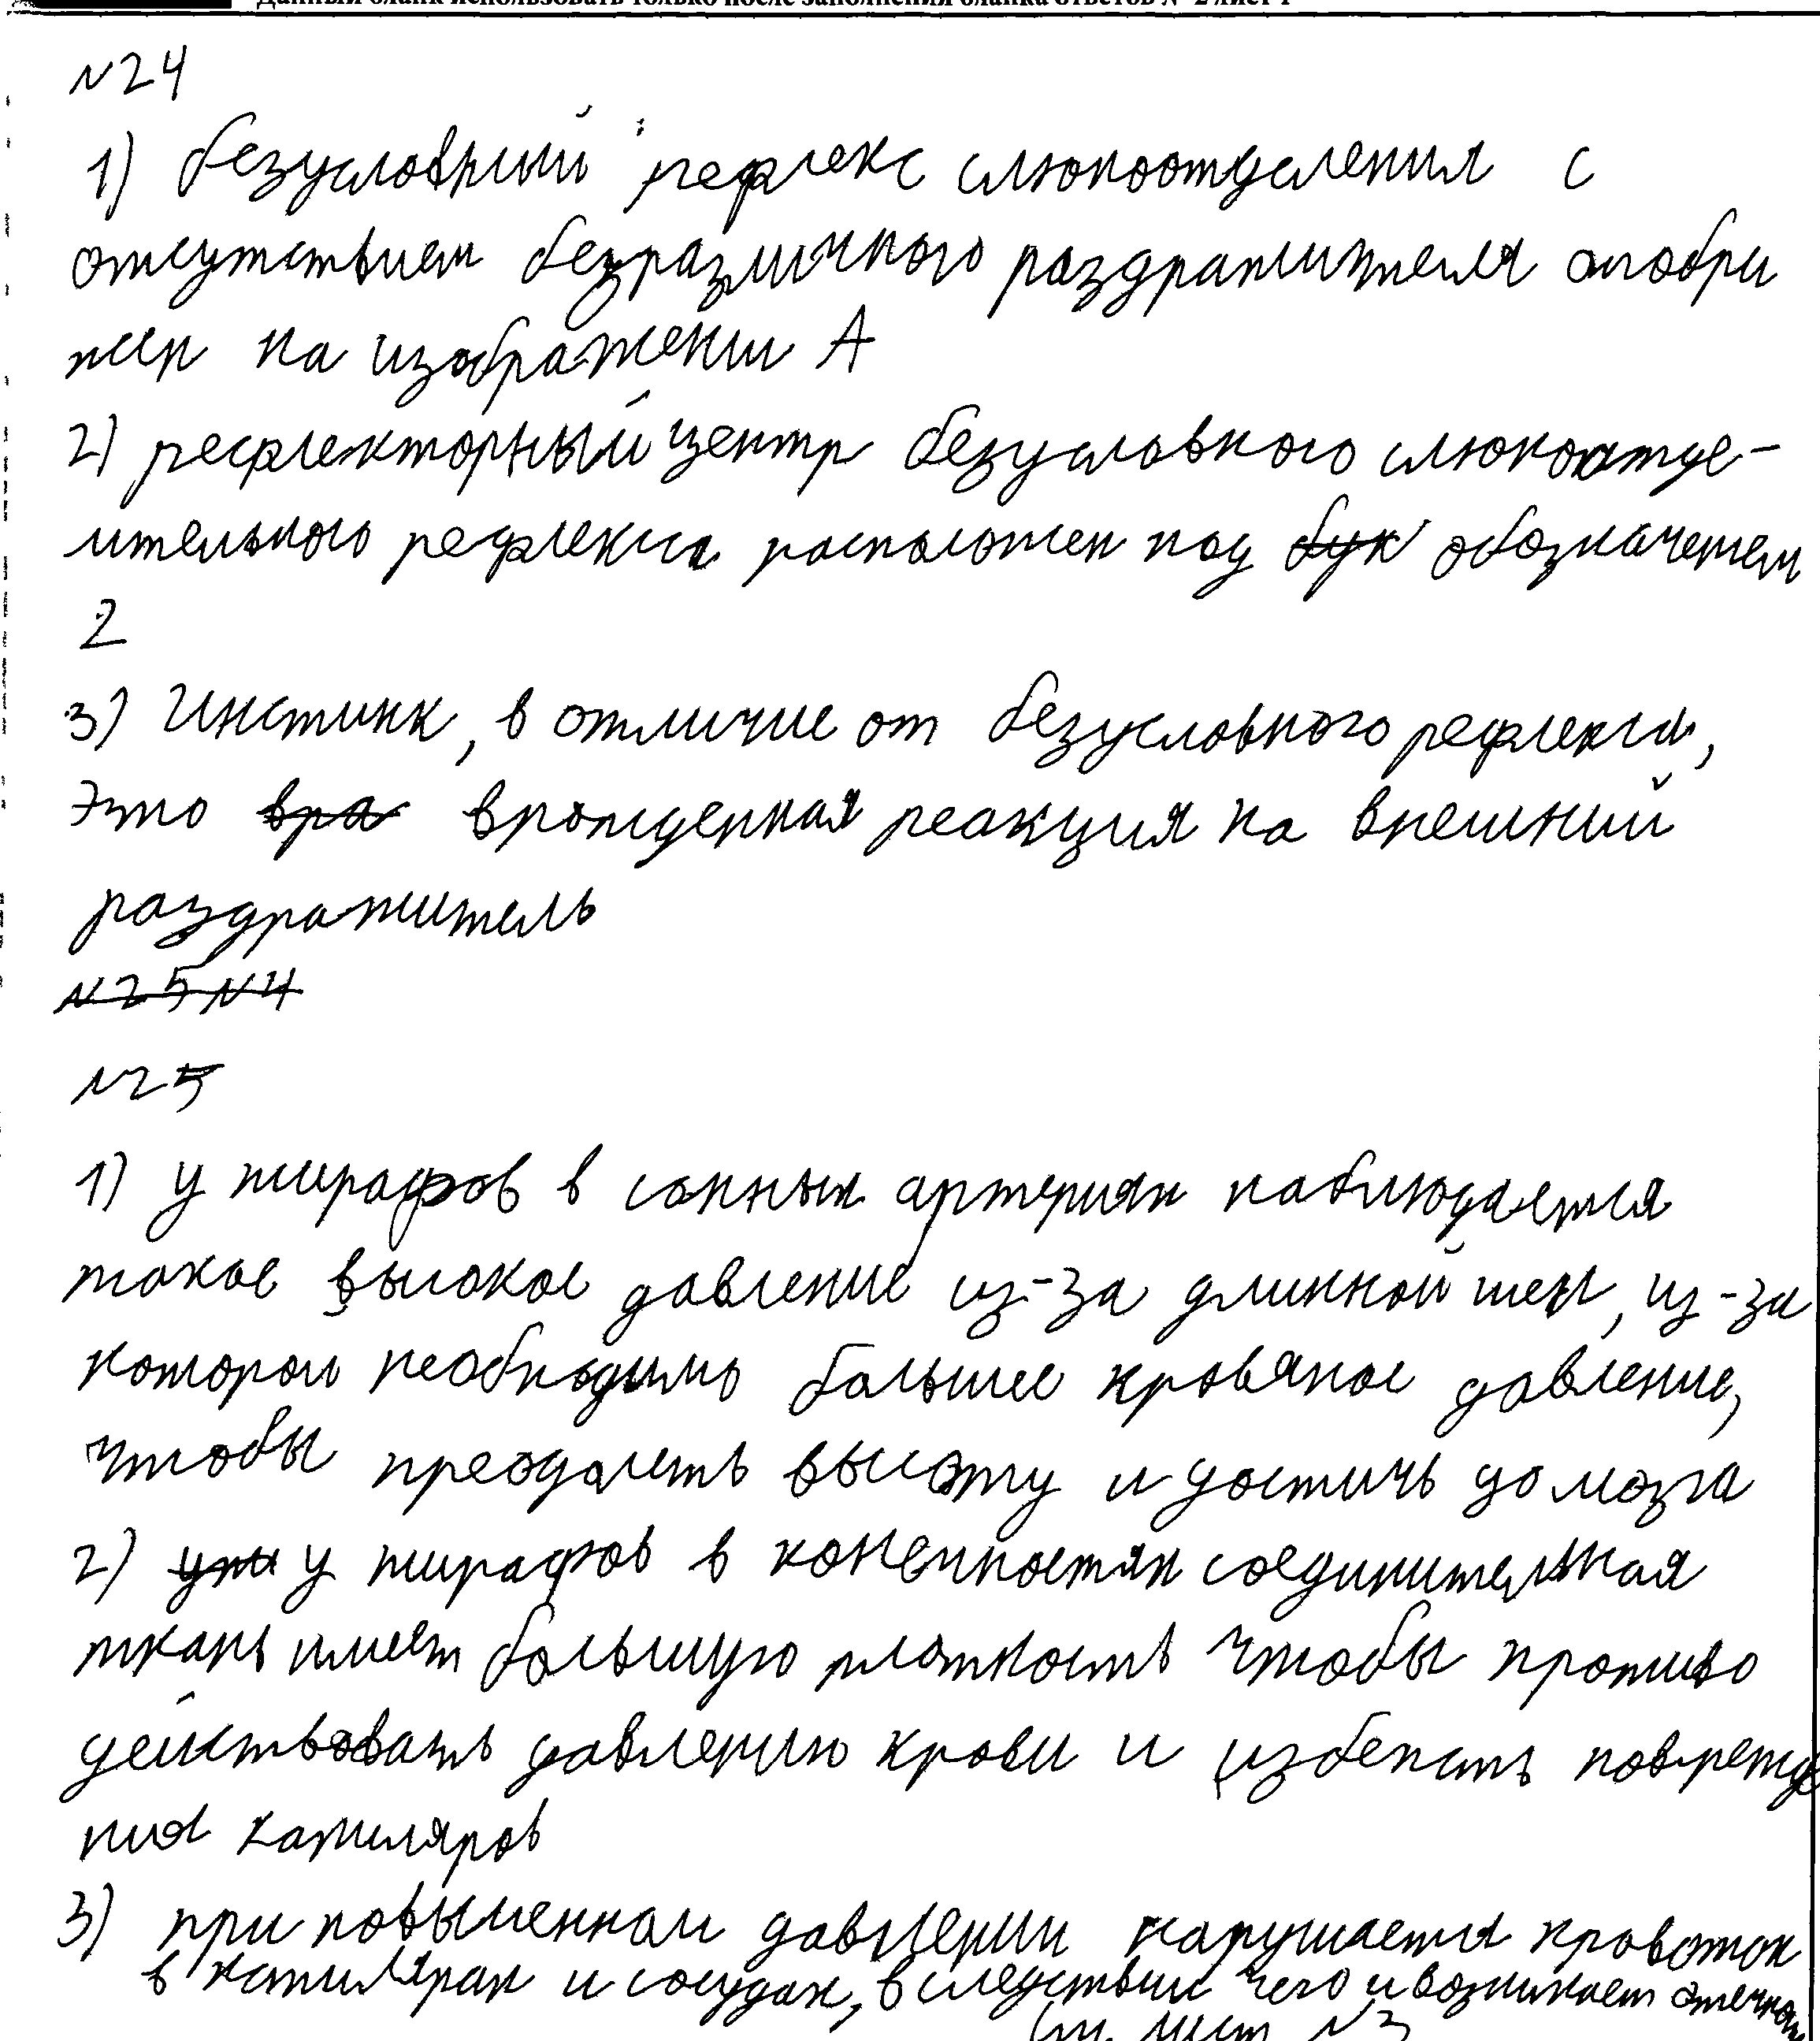 Данный бланк использовать только после заполнения бланка ответов № 2 лист 1
№24
1) безусловный рефлекс слюноотделения с
отсутствием безразличного раздражителя отобра
жен на изображении А
2) рефлекторный центр безусловного слюноотде-
лительного рефлекса расположен под бук обозначением
2
3) Инстинк, в отличие от безусловного рефлекса,
это вра врожденная реакция на внешний
раздражитель
№25 №4
№25
1) у жирафов в сонных артериях наблюдается
такое высокое давление из-за длинной шеи, из-за
которой необходимо большее кровяное давление,
чтобы преодолеть высоту и достичь до мозга
2) у жирафов в конечностях соединительная
ткань имеет большую плотность чтобы противо
действовать давлению крови и избежать поврежде
ния капиляров
3) при повышенном давлении нарушается кровоток
в капилярах и сосудах, в следствии чего и возникает отечность
(см. лист №3